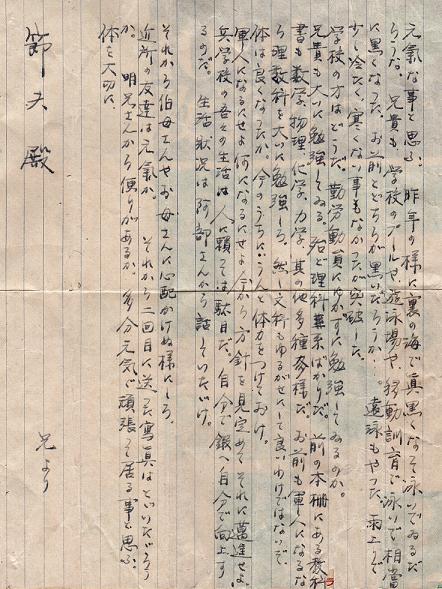 元気な事と思ふ、昨年の様に裏の海で真黒くなって泳いでゐるだ
らうな。兄貴も学校のプールや遊泳場や、移動訓育で泳いで相當
に黒くなった。お前とどちらが黒いだらうか・・。遠泳もやった、雨上りで
少し冷たく、寒くない事もなかったが突破した。
学校の方はどうだ。勤労動員にゆかずに勉強してゐるのか。
兄貴も大いに勉強してゐる。殆ど理科兼系ばかりだ。前の本棚にある教科
書も数学、物理、化学、力学、其の他多種多様だ。お前も軍人になるな
ら理数科を大いに勉強しろ。然し文科もゆるがせにして良いわけではないぞ。
体は良くなったか。今のうちに・・うんと体力をつけておけ。
軍人になるにせよ何になるにせよ今から方針を見定めてそれに萬進せよ。
兵学校の吾々の生活は人に頼っては駄目だ。自分で鍛へ自分で向上す
るのだ。 生活状況は阿部さんから話していただけ。
それから伯母さんやお母さんに心配かけぬ様にしろ。
近所の友達は元気か。 それから二回目に送った寫真はとゞいただらう
か。明兄さんから便りがあるか、多分元気で頑張って居る事と思ふ、
体を大切に
兄より
節夫殿